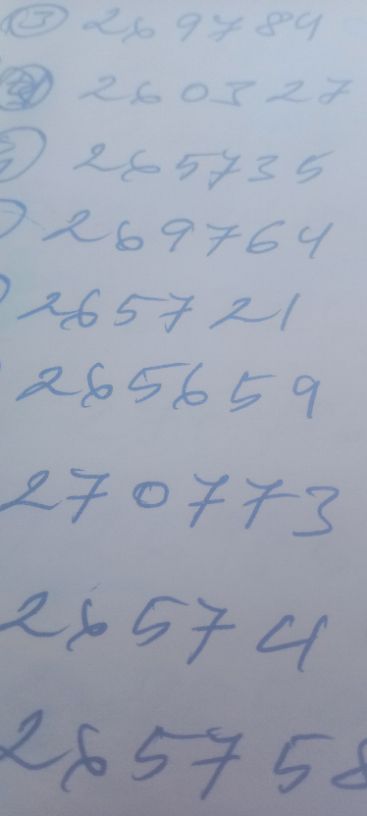 ③ 269784
260327
265735
269764
265721
265659
270773
26574
265758